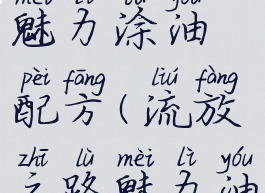 mèi lì tú yóu
魅力涂油
pèi fāng liú fàng
配方(流放
zhī lù mèi lì yóu
之路魅力油